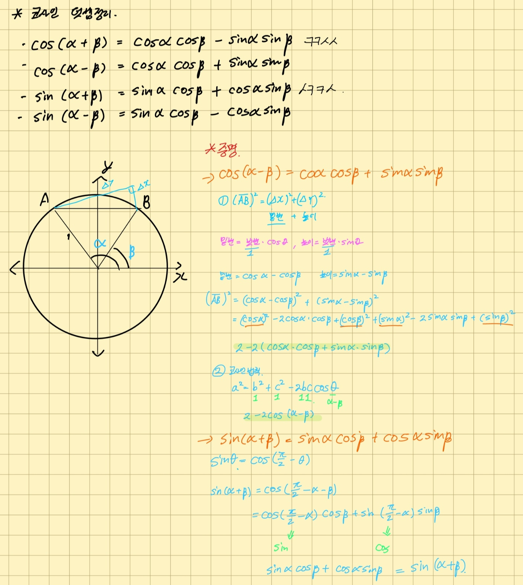 * 코사인 덧셈정리.
· cos (α + β) = cosα cosβ - sinα sinβ ㅋㅋㅅㅅ
- cos (α - β) = cosα cosβ + sinα sinβ
- sin (α+β) = sinα cosβ + cosα sinβ ㅅㅋㅋㅅ.
· sin (α-β) = sinα cosβ - cosα sinβ
* 증명.
→ cos(α-β) = cosα cosβ + sinα sinβ
① (AB)² = (Δx)²+(Δy)²
밑변 + 높이
밑변 = 빗변/1 · cosθ , 높이 = 빗변/1 · sinθ
밑변 = cosα - cosβ 높이 = sinα - sinβ
(AB)² = (cosα - cosβ)² + (sinα - sinβ)²
= (cosα)² - 2cosα · cosβ + (cosβ)² + (sinα)² - 2sinα sinβ + (sinβ)²
2 - 2(cosα · cosβ + sinα · sinβ)
② 코사인법칙.
a² = b² + c² - 2bc cosθ
1 1 1 1 α-β
2 - 2cos (α-β)
→ sin(α+β) = sinα cosβ + cosα sinβ
sinθ = cos(π/2 - θ)
sin(α+β) = cos(π/2 - α - β)
= cos(π/2 - α) cosβ + sin (π/2 - α) sinβ
sin cos
sinα cosβ + cosα sinβ = sin (α+β)
y
Δy Δx
A B
1 α β
x